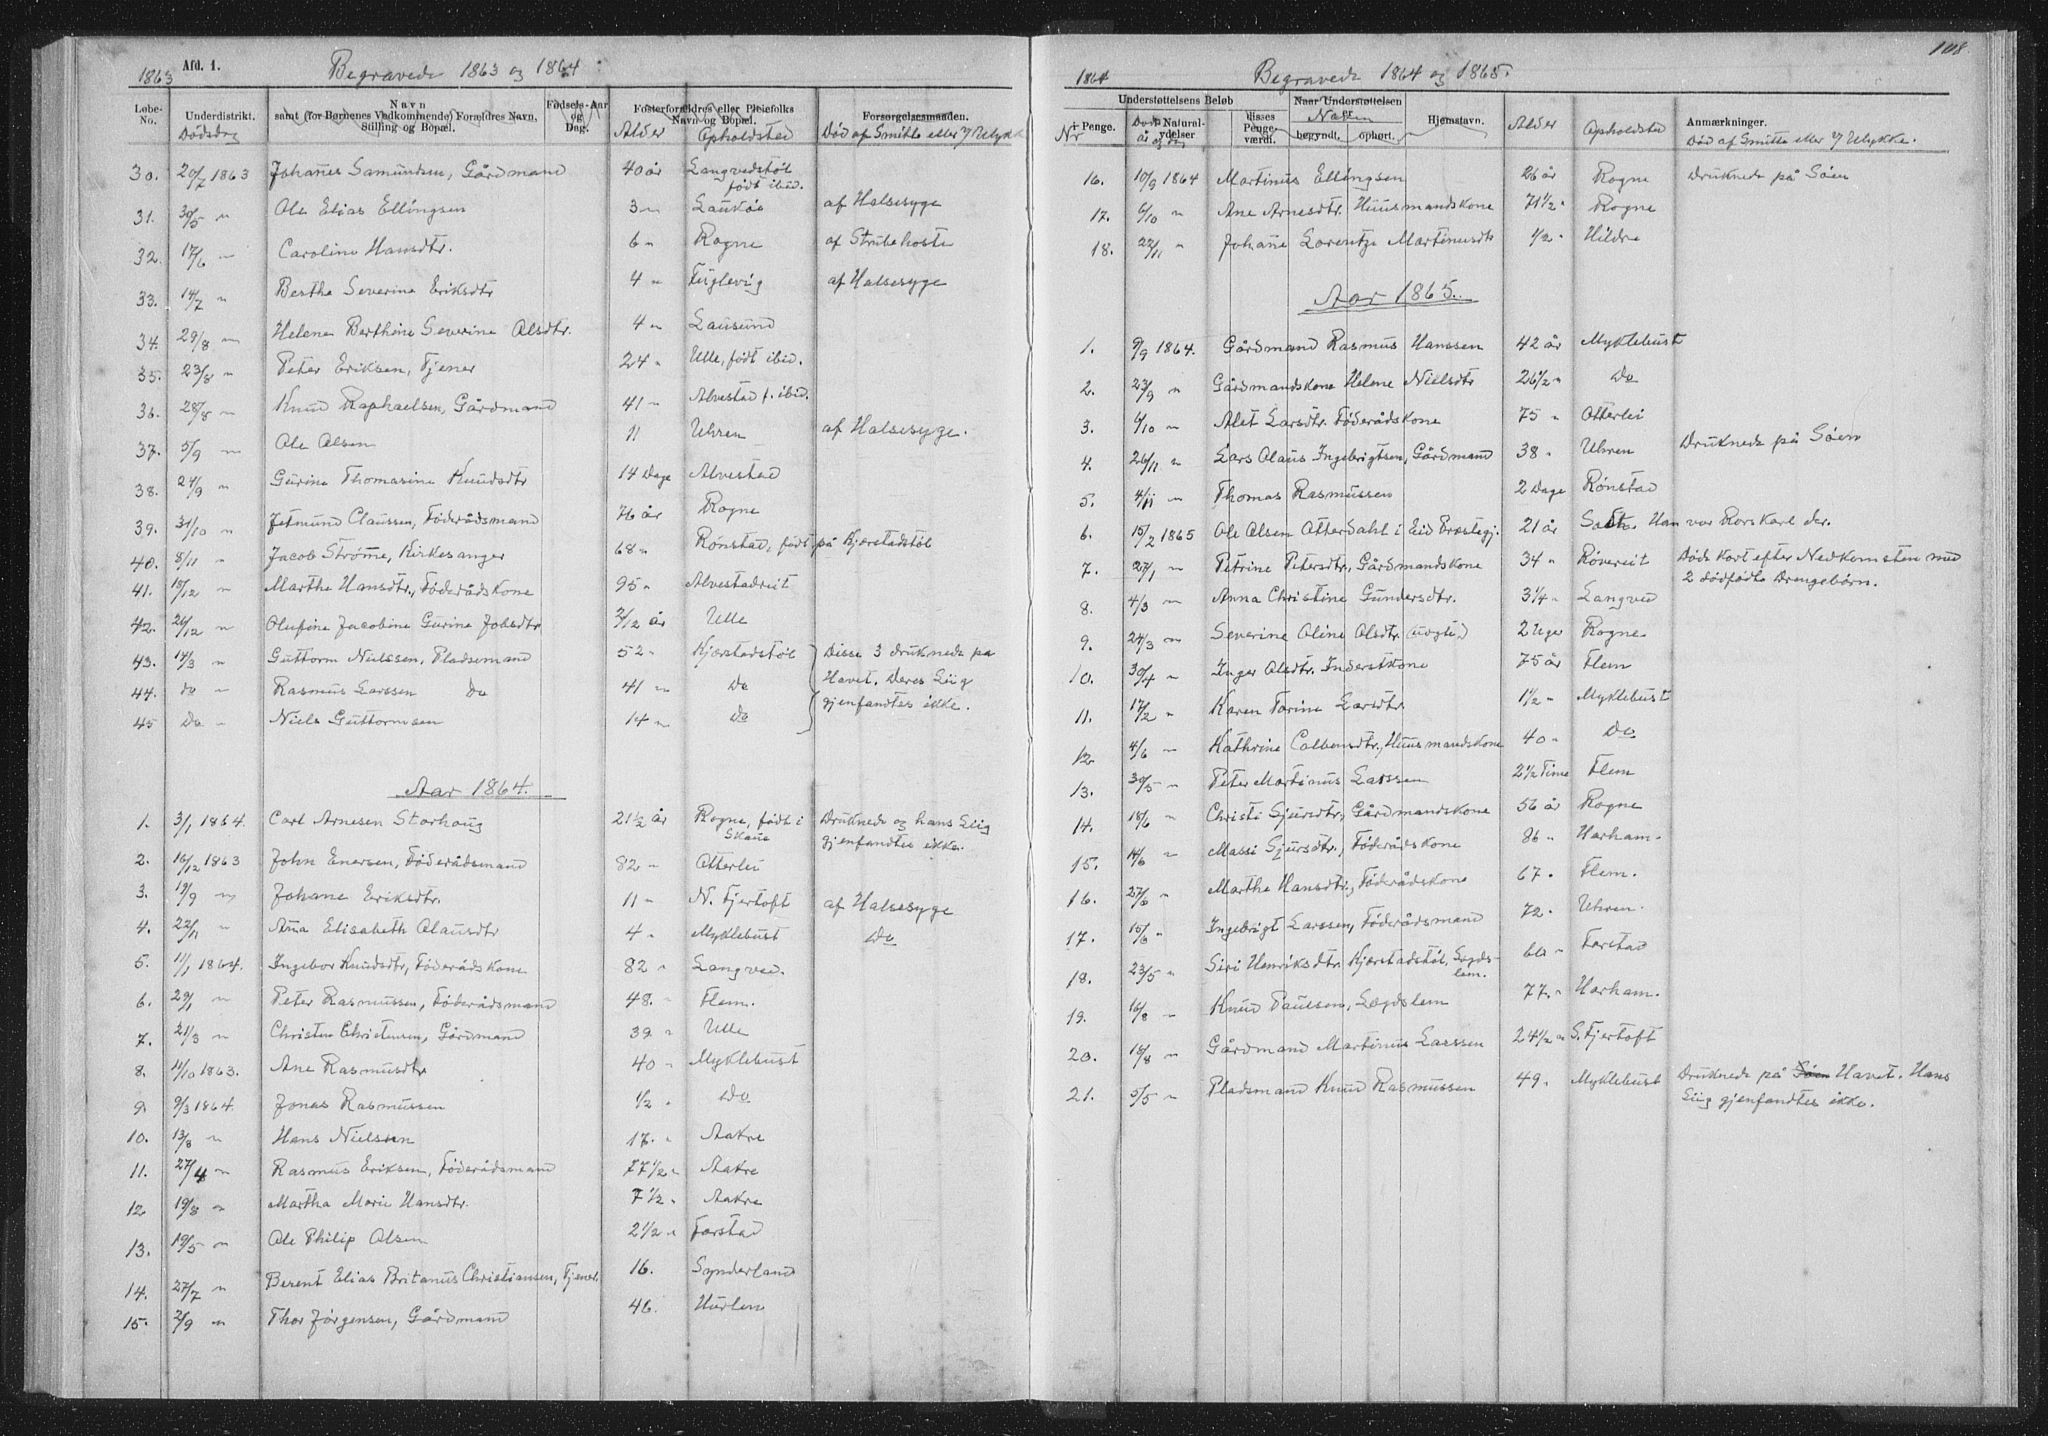 1863 Afd. 1. Begravede 1863 og 1864
Løbe-No. Underdistrikt. Navn samt (for Børnenes Vedkommende) Forældres Navn, Stilling og Bopæl. Fødsels-Aar og Dag. Fosterforældres eller Pleiefolks Navn og Bopæl. Forsørgelsesmaaden.
Dødsdag Alder Opholdsted Død af Smitte eller v/ Ulykke
30. 20/7 1863 Johanes Samundsen, Gårdmand 40 år Langvedstøl født ibid.
31. 30/5 " Ole Elias Ellingsen 3 " Laukøe af Halsesyge
32. 17/6 " Caroline Hansdtr. 6 " Rogne af Strubehoste
33. 14/7 " Berthe Severine Eriksdtr 4 " Fuglevig af Halsesyge
34. 29/8 " Helene Berthine Severine Olsdtr. 4 " Lausund
35. 23/8 " Peter Eriksen, Tjener 24 " Ulle, født ibid.
36. 28/8 " Knud Raphaelsen, Gårdmand 41 " Alvestad f. ibid.
37. 5/9 " Ole Olsen 11 Uhren af Halsesyge.
38. 24/9 " Gurine Thomasine Knudsdtr 14 Dage Alvestad
39. 31/10 " Jetmund Claussen, Föderådsmand 76 år Rogne
40. 8/11 " Jacob Strømme, Kirkesanger 68 " Rønstad, født på Kjærstadstøl
41. 19/12 " Marthe Hansdtr., Föderådskone 95 " Alvestadreit
42. 26/12 " Olufine Jacobine Gurine Johsdtr 2/12 år Ulle
43. 14/3 " Guttorm Nielssen, Pladsemand 52 " Kjærstadstøl Disse 3 druknede på
44. do " Rasmus Larssen Do 41 " Do Havet. Deres Liig
45 Do " Niels Guttormsen 14 " Do gjenfandtes ikke.
Aar 1864.
1. 3/1 1864. Carl Arnesen Storhaug 21 1/2 år Rogne, født i Skaue Druknede og hans Liig gjenfandtes ikke.
2. 16/12 1863 John Enersen, Föderådsmand 82 " Otterlei
3. 19/9 " Johane Eriksdtr. 11 " N. Fjertoft af Halsesyge
4. 22/11 " Ana Elisabeth Olausdtr 4 " Myklebust Do
5. 11/1 1864. Ingebor Knudsdtr, Föderådskone 82 " Langved.
6. 29/1 " Peter Rasmussen, Föderådsmand 48. " Flem.
7. 21/3 " Christen Christensen, Gårdmand 39 " Ulle
8. 11/10 1863. Ane Rasmusdtr 40 " Myklebust
9. 9/3 1864. Jonas Rasmussen 1/2 " Do
10. 13/8 " Hans Nielssen 17. " Aakre
11. 27/4 " Rasmus Eriksen, Föderådsmand 77 1/2 " Aakre
12 19/8 " Martha Marie Hansdtr. 7 1/2 " Aakre
13. 19/5 " Ole Philip Olsen 2 1/2 " Farstad
14. 27/7 " Berent Elias Britanus Christiansen, Tjener. 16. Synderland
15. 2/9 " Thor Jørgensen, Gårdmand 46. Hurlen
1864 Begravede 1864 og 1865. 108
Understøttelsens Beløb Naar Understøttelsen er
+ Penge. Naturalydelser disses Pengeværdi. begyndt. ophørt. Hjemstavn. Anmærkninger.
Nr Døds år og dag Navn Alder Opholdsted Død af Smitte eller v/ Ulykke.
16. 10/9 1864 Martinus Ellingsen 26 år Rogne Druknede på Søen
17. 6/10 " Ane Arnesdtr. Huusmandskone 71 1/2 " Rogne
18. 22/11 " Johane Lorentze Martinusdtr 1/2 " Hildre
Aar 1865.
1. 9/9 1864. Gårdmand Rasmus Hanssen 42 år Myklebust
2. 23/9 " Gårdmandskone Helene Nielsdtr 26 1/2 " Do
3. 6/10 " Alet Larsdtr. Föderådskone 75 " Otterlei
4. 26/11 " Lars Olaus Ingebrigtsen, Gårdmand 38 " Uhren Druknede på Søen
5. 4/11 " Thomas Rasmussen 2 Dage Rønstad
6. 15/2 1865 Ole Olsen Otterdahl i Eid Præstegj. 21 år Han var Rorskarl der.
7. 27/1 " Petrine Petersdtr, Gårdmandskone 34 " Røvereit Døds kort efter Nedkomsten med 2 dødfødte Drengebørn.
8. 4/3 " Anna Christine Gundersdtr. 3 1/4 " Langved
9. 24/3 " Severine Oline Olsdtr. (uægte) 2 Uger Rogne
10. 30/4 " Inger Olsdtr. Inderstkone 75 år Flem
11. 17/2 " Karen Tarine Larsdtr. 1 1/2 " Myklebust
12. 4/6 " Kathrine Colbensdtr., Huusmandskone 40 " Do
13. 30/5 " Peter Martinus Larssen 2 1/2 Time Flem
14. 18/6 " Christi Sjursdtr, Gårdmandskone 56 år Rogne
15. 14/6 " Massi Sjursdtr., Föderådskone 86 " Harham.
16. 27/6 " Marthe Hansdtr., Föderådskone 67. " Flem.
17. 15/6 " Ingebrigt Larssen, Föderådsmand 72. " Uhren.
18. 23/5 " Siri Henriksdtr Kjærstadstøl, Lægdslem. 60 " Farstad
19. 16/8 " Knud Paulsen, Lægdslem 77. " Harham.
20. 18/8 " Gårdmand Martinus Larssen 24 1/2 " S. Fjertoft
21. 5/5 " Pladsmand Knud Rasmussen 49. " Myklebust Druknede på Søen Havet. Hans
Liig gjenfandtes ikke.